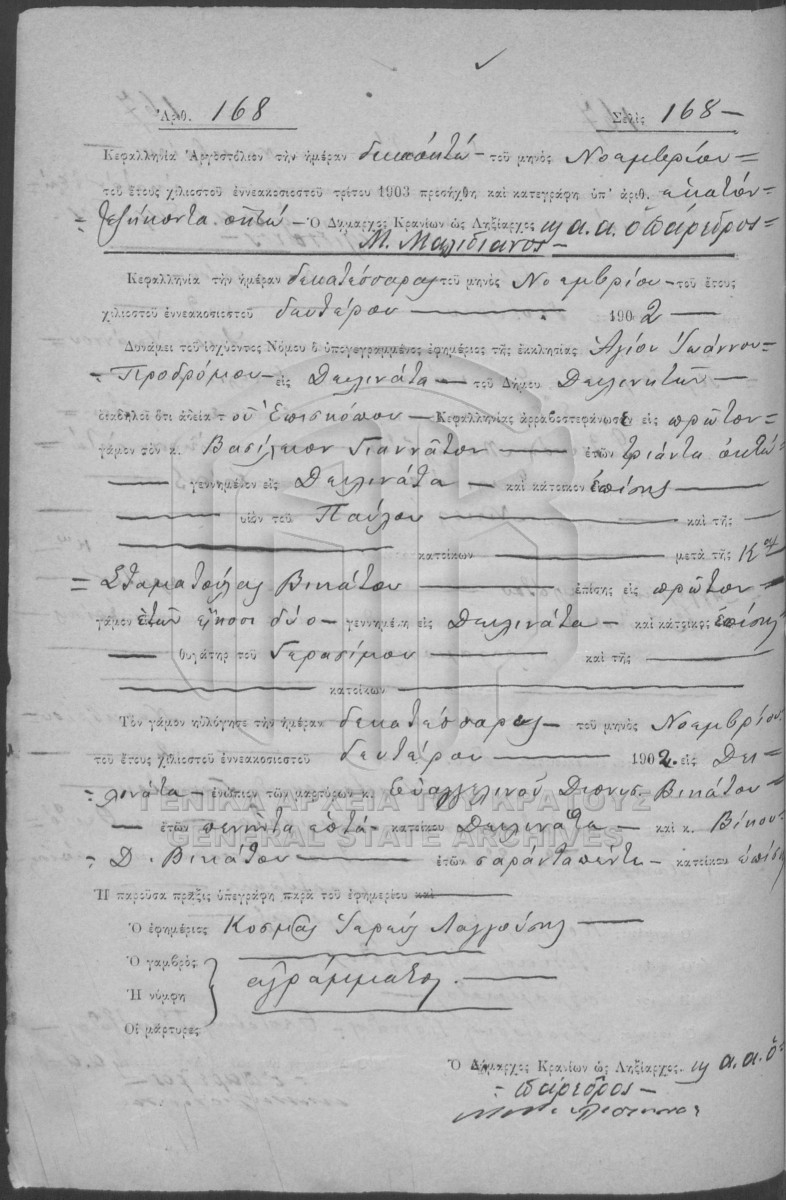 Ἀριθ. 168 Σελὶς 168
Κεφαλληνία Ἀργοστόλιον τὴν ἡμέραν δεκαοκτώ τοῦ μηνὸς Νοεμβρίου
τοῦ ἔτους χιλιοστοῦ ἐννεακοσιοστοῦ τρίτου 1903 προσήχθη καὶ κατεγράφη ὑπ' ἀριθ. ἑκατὸν
ἑξήκοντα ὀκτώ Ὁ Δήμαρχος Κρανίων ὡς Ληξίαρχος α. α. ὁ πάρεδρος
Κεφαλληνία τὴν ἡμέραν δεκατέσσαρας τοῦ μηνὸς Νοεμβρίου τοῦ ἔτους
χιλιοστοῦ ἐννεακοσιοστοῦ δευτέρου 1902
Δυνάμει τοῦ ἰσχύοντος Νόμου ὁ ὑπογεγραμμένος ἐφημέριος τῆς ἐκκλησίας Ἁγίου Ἰωάννου
Προδρόμου εἰς Δειλινάτα τοῦ Δήμου
διαδηλοῖ ὅτι ἀδείᾳ τοῦ Ἐπισκόπου Κεφαλληνίας ἀρραβοστεφάνωσε εἰς πρῶτον
γάμον τὸν κ. Βασίλειον Γιαννᾶτον ἐτῶν τριάντα ὀκτώ
γεννημένον εἰς Δειλινάτα καὶ κάτοικον ἐπίσης
υἱὸν τοῦ Παύλου καὶ τῆς
κατοίκων μετὰ τῆς Κας
Σταματούλας Βικάτου ἐπίσης εἰς πρῶτον
γάμον ἐτῶν εἴκοσι δύο γεννημένη εἰς Δειλινάτα καὶ κάτοικος ἐπίσης
θυγάτηρ τοῦ Γερασίμου καὶ τῆς
κατοίκων
Τὸν γάμον ηὐλόγησε τὴν ἡμέραν δεκατέσσαρας τοῦ μηνὸς Νοεμβρίου
τοῦ ἔτους χιλιοστοῦ ἐννεακοσιοστοῦ δευτέρου 1902. εἰς Δει
λινάτα ἐνώπιον τῶν μαρτύρων κ. Εὐαγγελινοῦ Διονυσ. Βικάτου
ἐτῶν πενῆντα ἑπτά κατοίκου Δειλινάτα καὶ κ.
Δ. Βικάτου ἐτῶν σαρανταπέντε κατοίκου ἐπίσης
Ἡ παροῦσα πρᾶξις ὑπεγράφη παρὰ τοῦ ἐφημερίου καὶ
Ὁ ἐφημέριος Κοσμᾶς Ἱερεὺς
Ὁ γαμβρὸς
Ἡ νύμφη ἀγράμματοι.
Οἱ μάρτυρες
Ὁ Δήμαρχος Κρανίων ὡς Ληξίαρχος. α. α. ὁ
πάρεδρος
ΓΕΝΙΚΑ ΑΡΧΕΙΑ ΤΟΥ ΚΡΑΤΟΥΣ
GENERAL STATE ARCHIVES